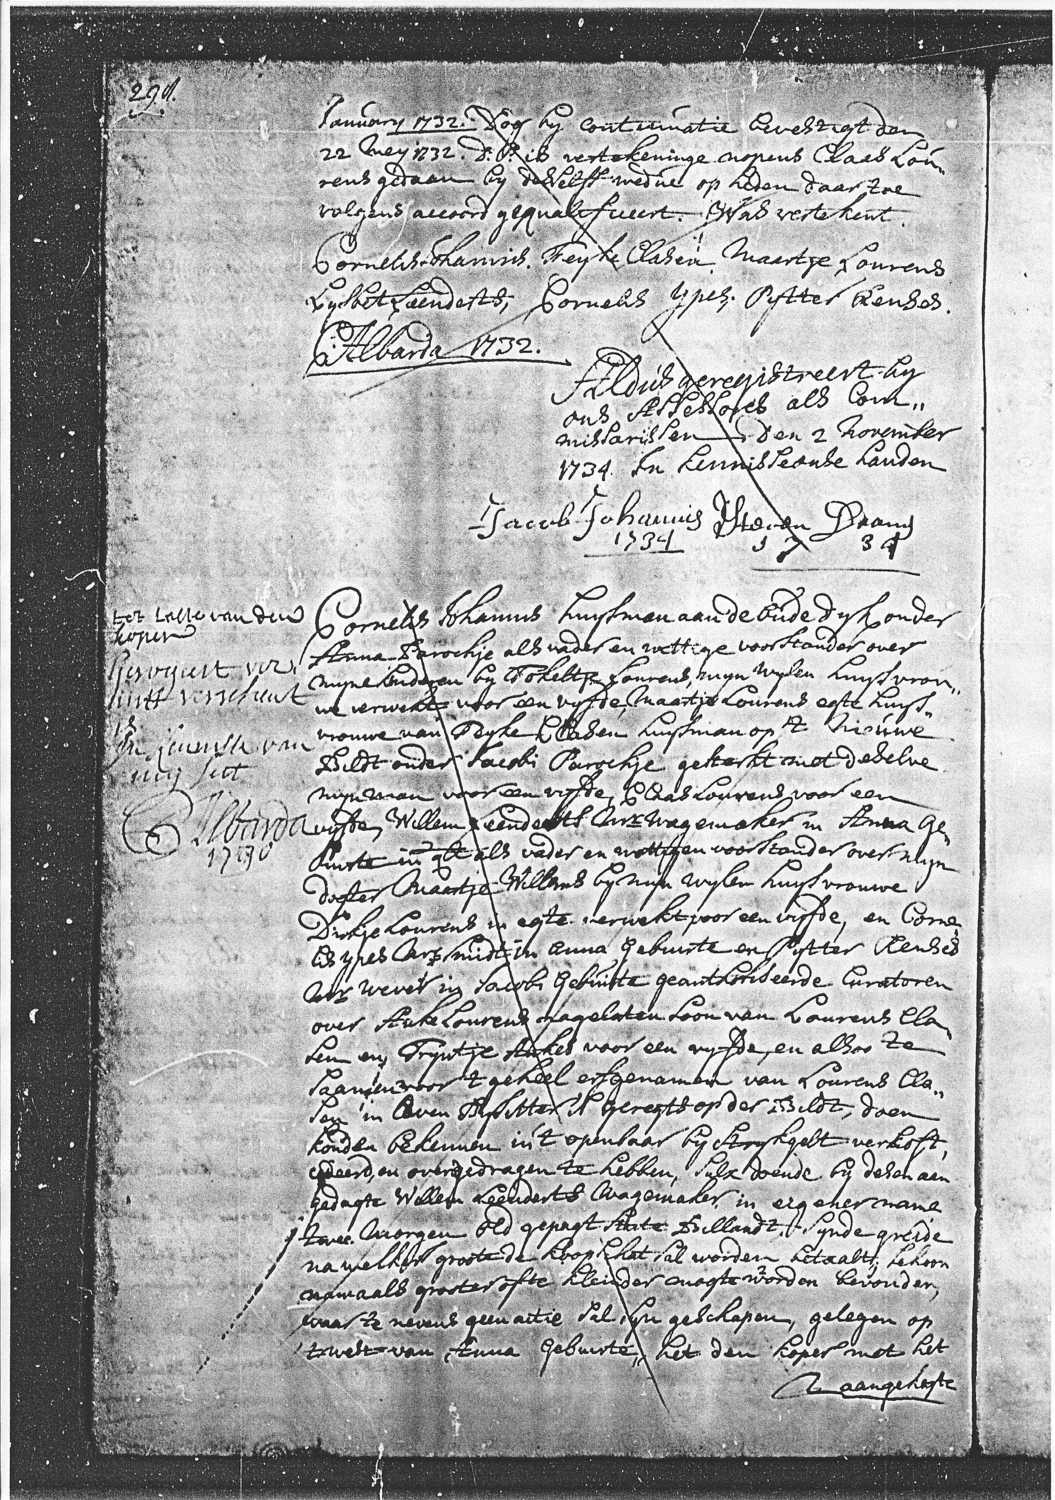 291.
January 1732. Dog by continuatie bevestigt den
22 Mey 1732. D: P: is vertekeninge nopens Claas Lou„
rens gedaan by deselfs wedue op heden daar toe
volgens accoord gequalificeert. Was vertekent.
Cornelis Johannis. Feyke Clasen. Maartje Lourens
Lysbet Leenderts, Cornelis Ypes. Pytter Renses.
C: Albarda 1732.
Aldus geregistreert by
ons Assessores als Com„
missarissen den 2 November
1734. In kennisse onse handen
Jacob Johannis Steven Drany
1734 1734
tot laste van den
koper
geregistreert
verschent
is
In kennisse van
my sect
C Albarda
1730
Cornelis Johannis huysman aan de oude dyk onder
Anna Parochje als vader en wettige voorstander over
myne kinderen by Fokeltje Lourens myn wylen huysvrou„
we verwekt voor een vyfde, Maartje Lourens egte huys„
vrouwe van Feyke Clasen huysman op 't Nieuwe
Bildt onder Jacobi Parochje gesterkt met deselve
myn man voor een vyfde, Claas Lourens voor een
vyfde, Willem Leenderts Mr wagemaker in Anna Ge„
buirte in qlt als vader en wettigen voorstander over myn
dogter Maartje Willems by myn wylen huysvrouwe
Dirkje Lourens in egte verwekt voor een vyfde, en Corne„
lis Ypes Mr smidt in Anna Gebuirte en Pytter Renses
Mr wever in Jacobi Gebuirte geauthoriseerde Curatoren
over Auke Lourens nagelaten soon van Lourens Cla„
sen en Tryntje Aukes voor een vyfde, en alsoo te
saamen voor 't geheel erfgenamen van Lourens Cla„
sen in leven Bysitter 's geregts op der Bildt, doen
konden bekennen in 't openbaar by strykgelt verkoft,
cedeerd, en overgedragen te hebben, sulx doende by desen aen
gedagte Willem Leenderts Wagemaker, in eigener name
twee Morgen old gepagt State Billandt, synde greide
na welker groote de koopschat sal worden betaalt, schoon
namaals groter ofte kleinder mogte worden bevonden,
waar te nevens geen actie sal syn geschapen, gelegen op
't west van Anna Gebuirte, het den koper met het
aangehegte